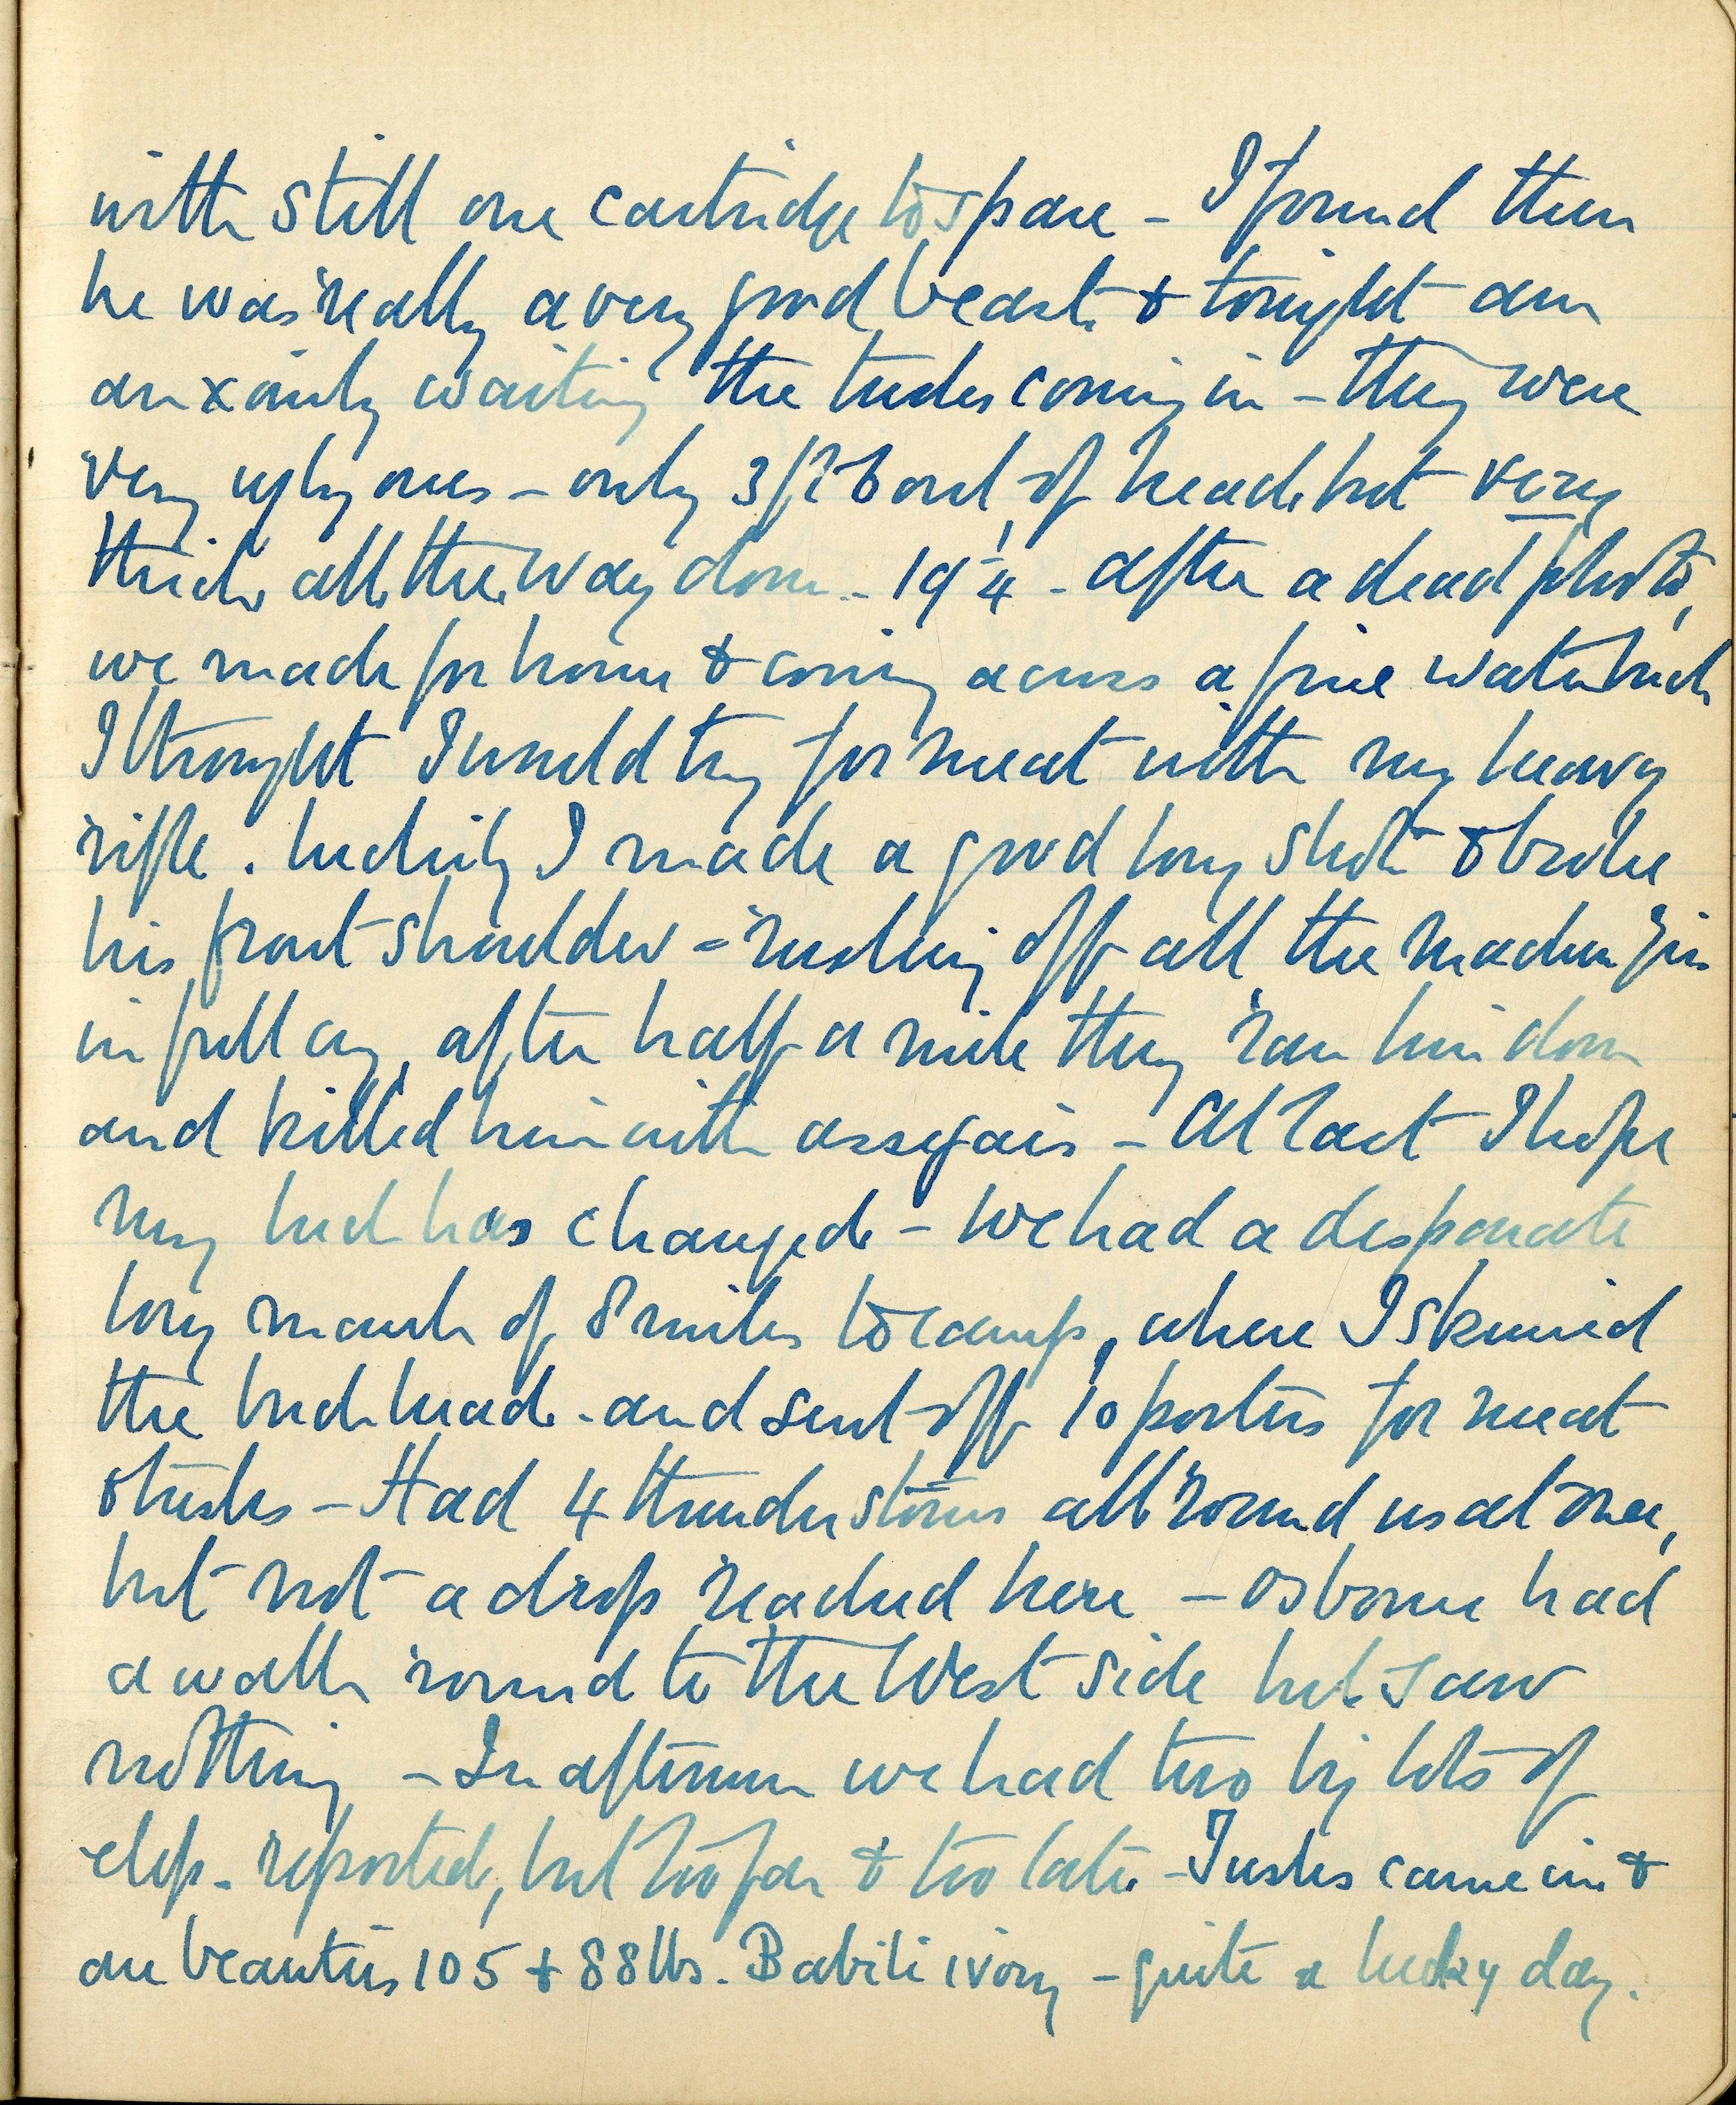 with still one cartridge to spare – I found then
he was really a very good beast & tonight am
anxiously waiting the tusks coming in – they were
very ugly ones – only 3 ft 6 out of head but very
thick all the way down – 19 1/4 – after a dead photo,
we made for home & coming across a fine waterbuck
I thought I would try for meat with my heavy
rifle. luckily I made a good long shot & broke
his front shoulder – rushing off all the
in full cry, after half a mile they ran him down
and killed him with assegais – At last I hope
my luck has changed – We had a desperate
long march of 8 miles to camp, where I skinned
the buck head – and sent off 10 porters for meat
& tusks – Had 4 thunder storms all round us at once,
but not a drop reached here – Osborne had
a walk round to the West side but saw
nothing – In afternoon we had two big lots of
elep. reported, but too far & too late – Tusks came in &
are beauties 105 & 88 lbs. Babili ivory – quite a lucky day.